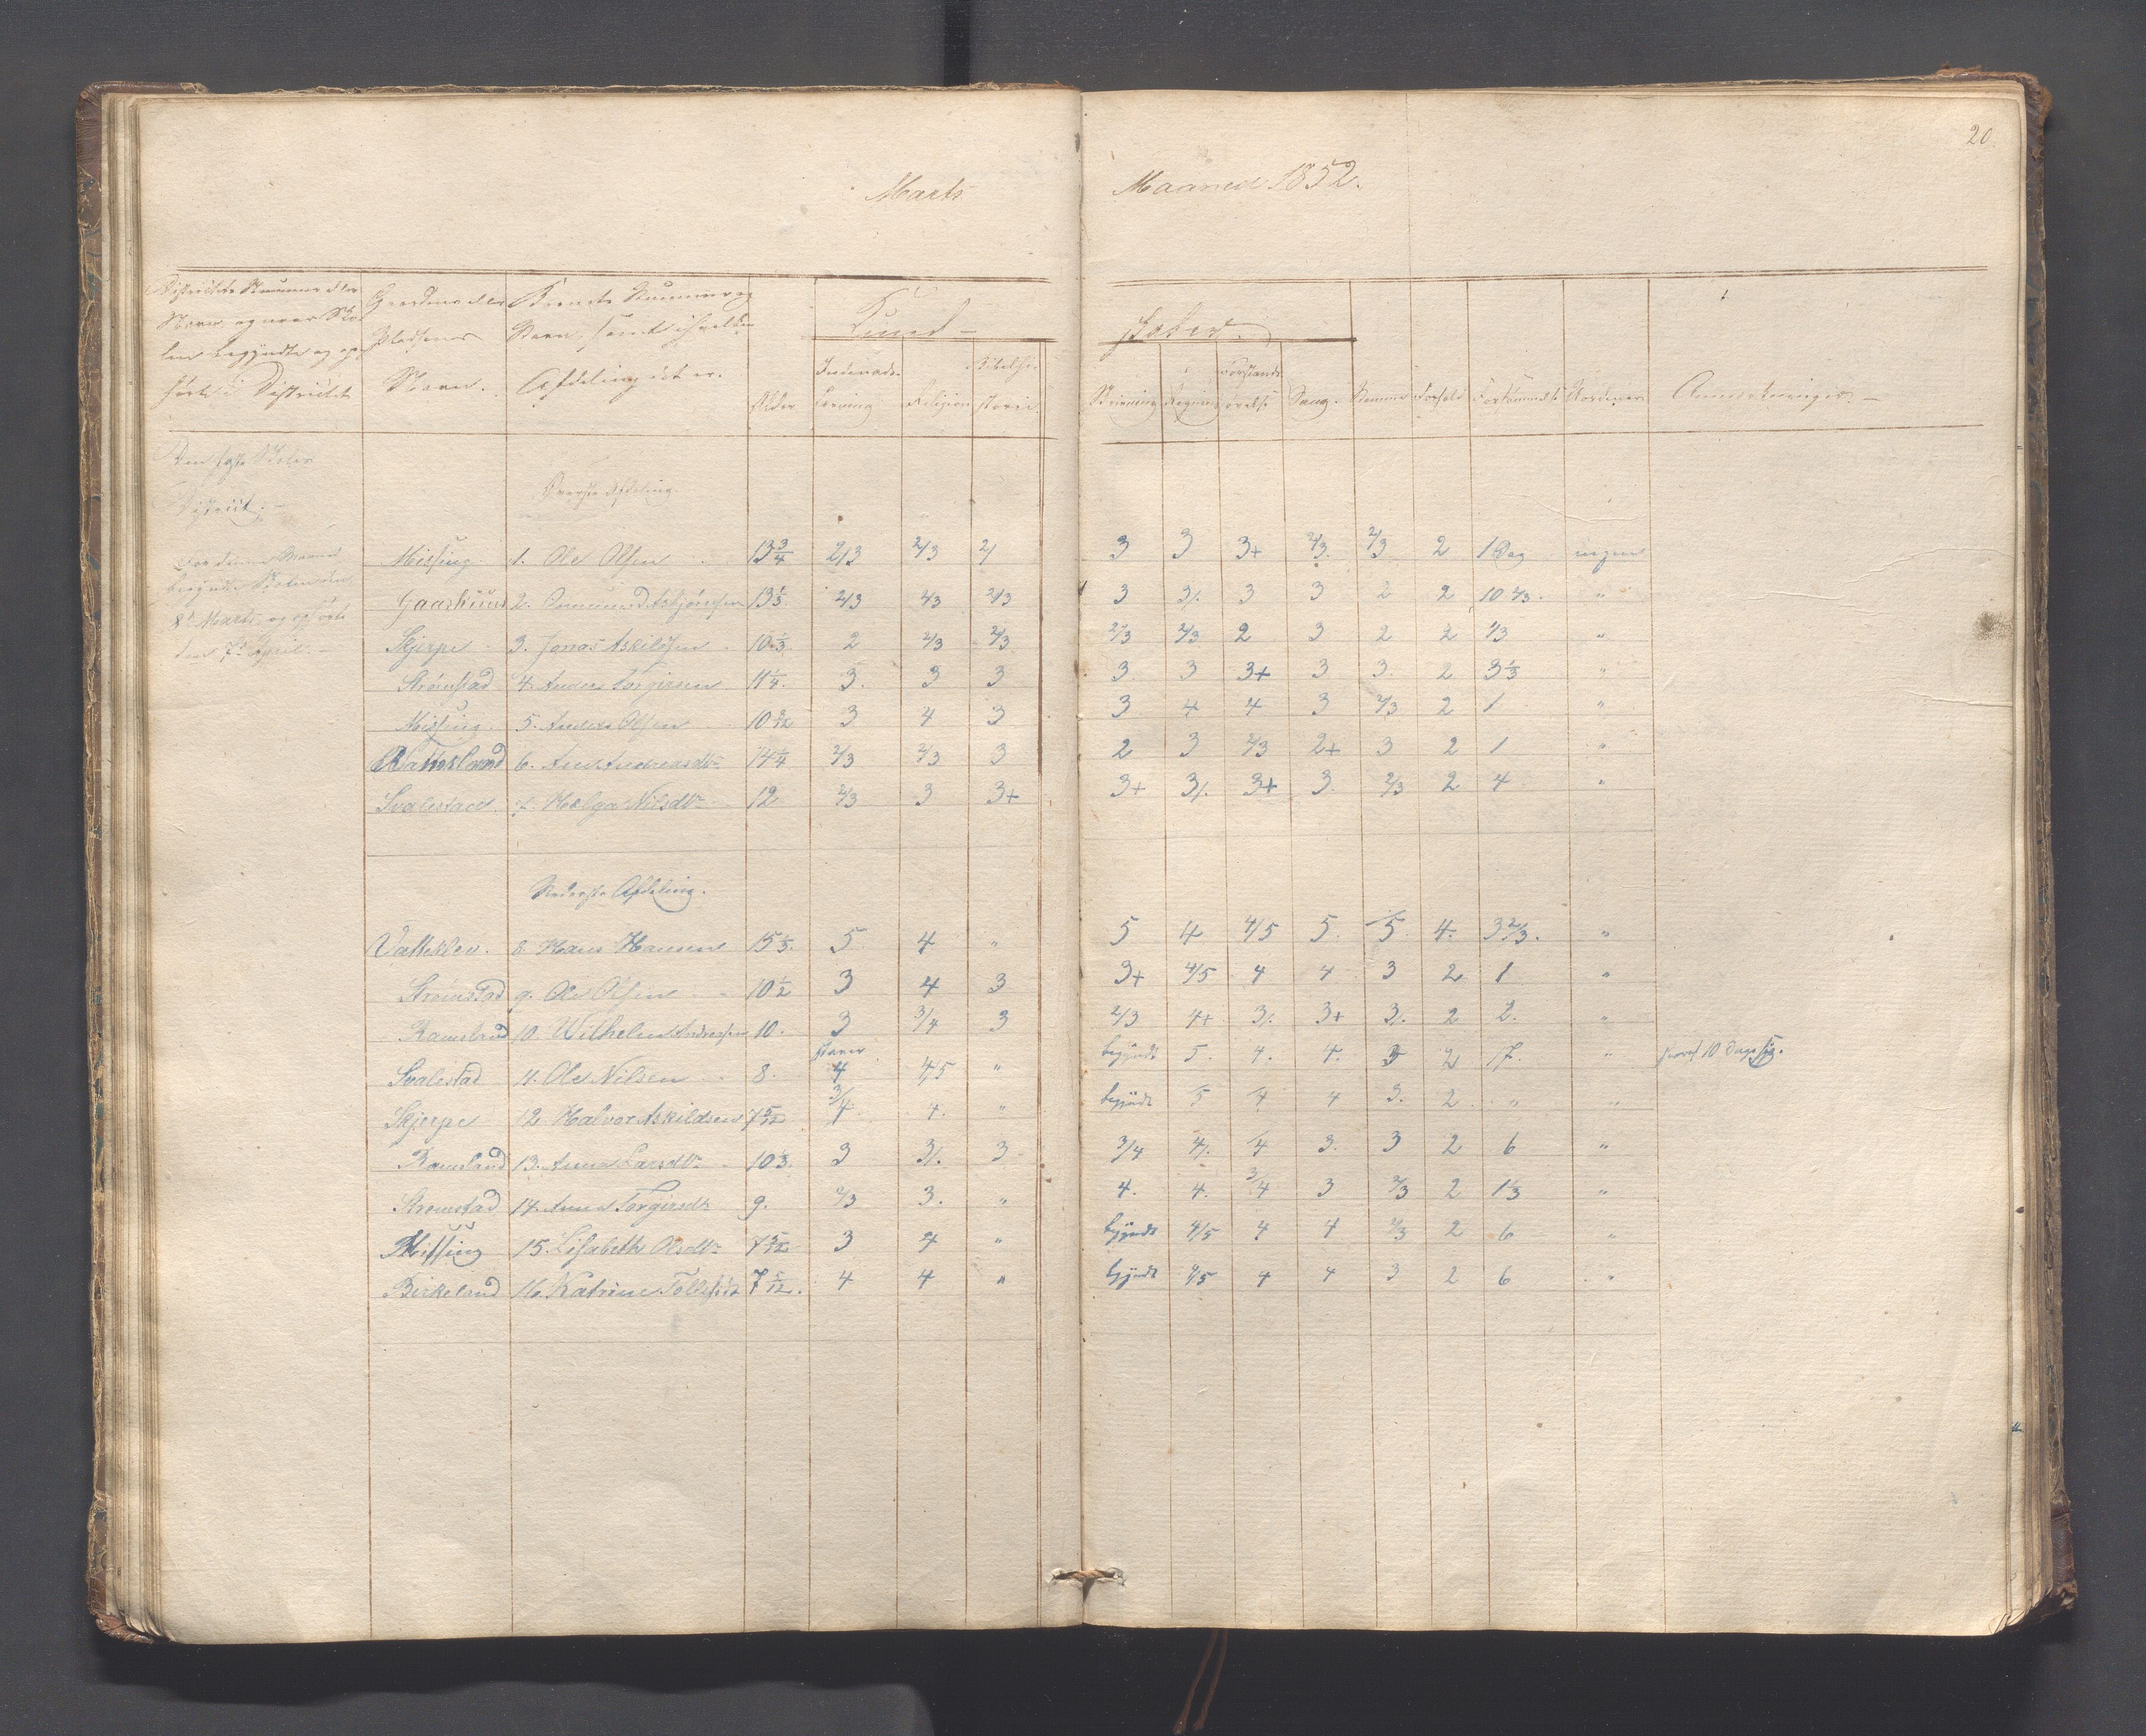 20.
Marts Maaned 1852.
Districtets Nummer eller
Navn, og naar Sko-
len begyndte og op-
hørte i Districtet
Gaardens eller
Pladsenes
Navn.
Barnets Nummer og
Navn, samt i hvilken
Afdeling det er.
Alder
Kund-
skaber.
Indenads-
Læsning
Religion
Bibelhi-
storie.
Skrivning
Regning
Forstands-
øvelse
Sang.
Nemme
Forhold
Forsømmelse
Annmærkninger.
Den faste Skoles
District.
For denne Maaned
begyndte Skolen den
8de Marts, og ophørte
den 7de April.
Øverste Afdeling
Missing 1. Ole Olsen 13 3/4 2/3 2/3 2/ 3 3 3+ 2/3. 2/3 2 1 Dag ingen
Gaashuus 2. Osmund Asbjørnsen 13 1/3. 2/3 2/3 2/3 3 3/. 3 3 2 2 10 2/3. "
Skjerpe 3. Jonas Askildsen 10 1/3 2 2/3 2/3 2/3 2/3 2 3 2 2 1/3 "
Strømstad 4. Anders Torgiersen 11 1/4. 3. 3 3 3. 3 3+ 3 3. 2 3 1/3 "
Missing 5. Anders Olsen 3 4 3 3 4 4 3 2/3 2 1 "
Ramsland 6. Ane Andreasdtr 14 1/4 2/3 2/3 3 2 3 2/3 2+ 3 2 1 "
Svalestad 7. Helga Nilsdtr 12 2/3 3 3+ 3+ 3/. 3+ 3. 2/3 2 4 "
Nederste Afdeling.
Vatteklev. 8. Hans Hansen 15 1/3. 5 4 " 5 4 4/5 5. 5. 4. 3 2/3. "
Strømstad 9. Ole Olsen 10 1/2 3 4 3 3+ 4/5 4 4 3 2 1 "
Ramsland 10. Wilhelm Andreasen 10. 3 3/4 3 2/3 4+ 3/. 3+ 3/. 2 2. "
Svalestad 11. Ole Nilsen 8. staver 4 4/5 " begyndt 5. 4. 4. 3 2 17. " 10 Dage syg.
Skjerpe 12. Halvor Askildsen 7 5/12 3/4. 4. " begyndt 5 4 4 3. 2 " "
Ramsland 13. Anna Larsdtr 10 1/3. 3 3/. 3 3/4 4/. 4 3. 3 2 6 "
Strømstad 14. Anna Torgiersdtr 9. 2/3 3. " 4. 4. 3/4 3 2/3 2 1 1/3 "
Missing 15. Lisabeth Olsdtr 7 5/12. 3 4 " begyndt 4/5 4 4 2/3 2 6 "
Birkeland 16. Katrine Tollefsdtr 7 5/12. 4 4 " begyndt 4/5 4 4 3 2 6 "